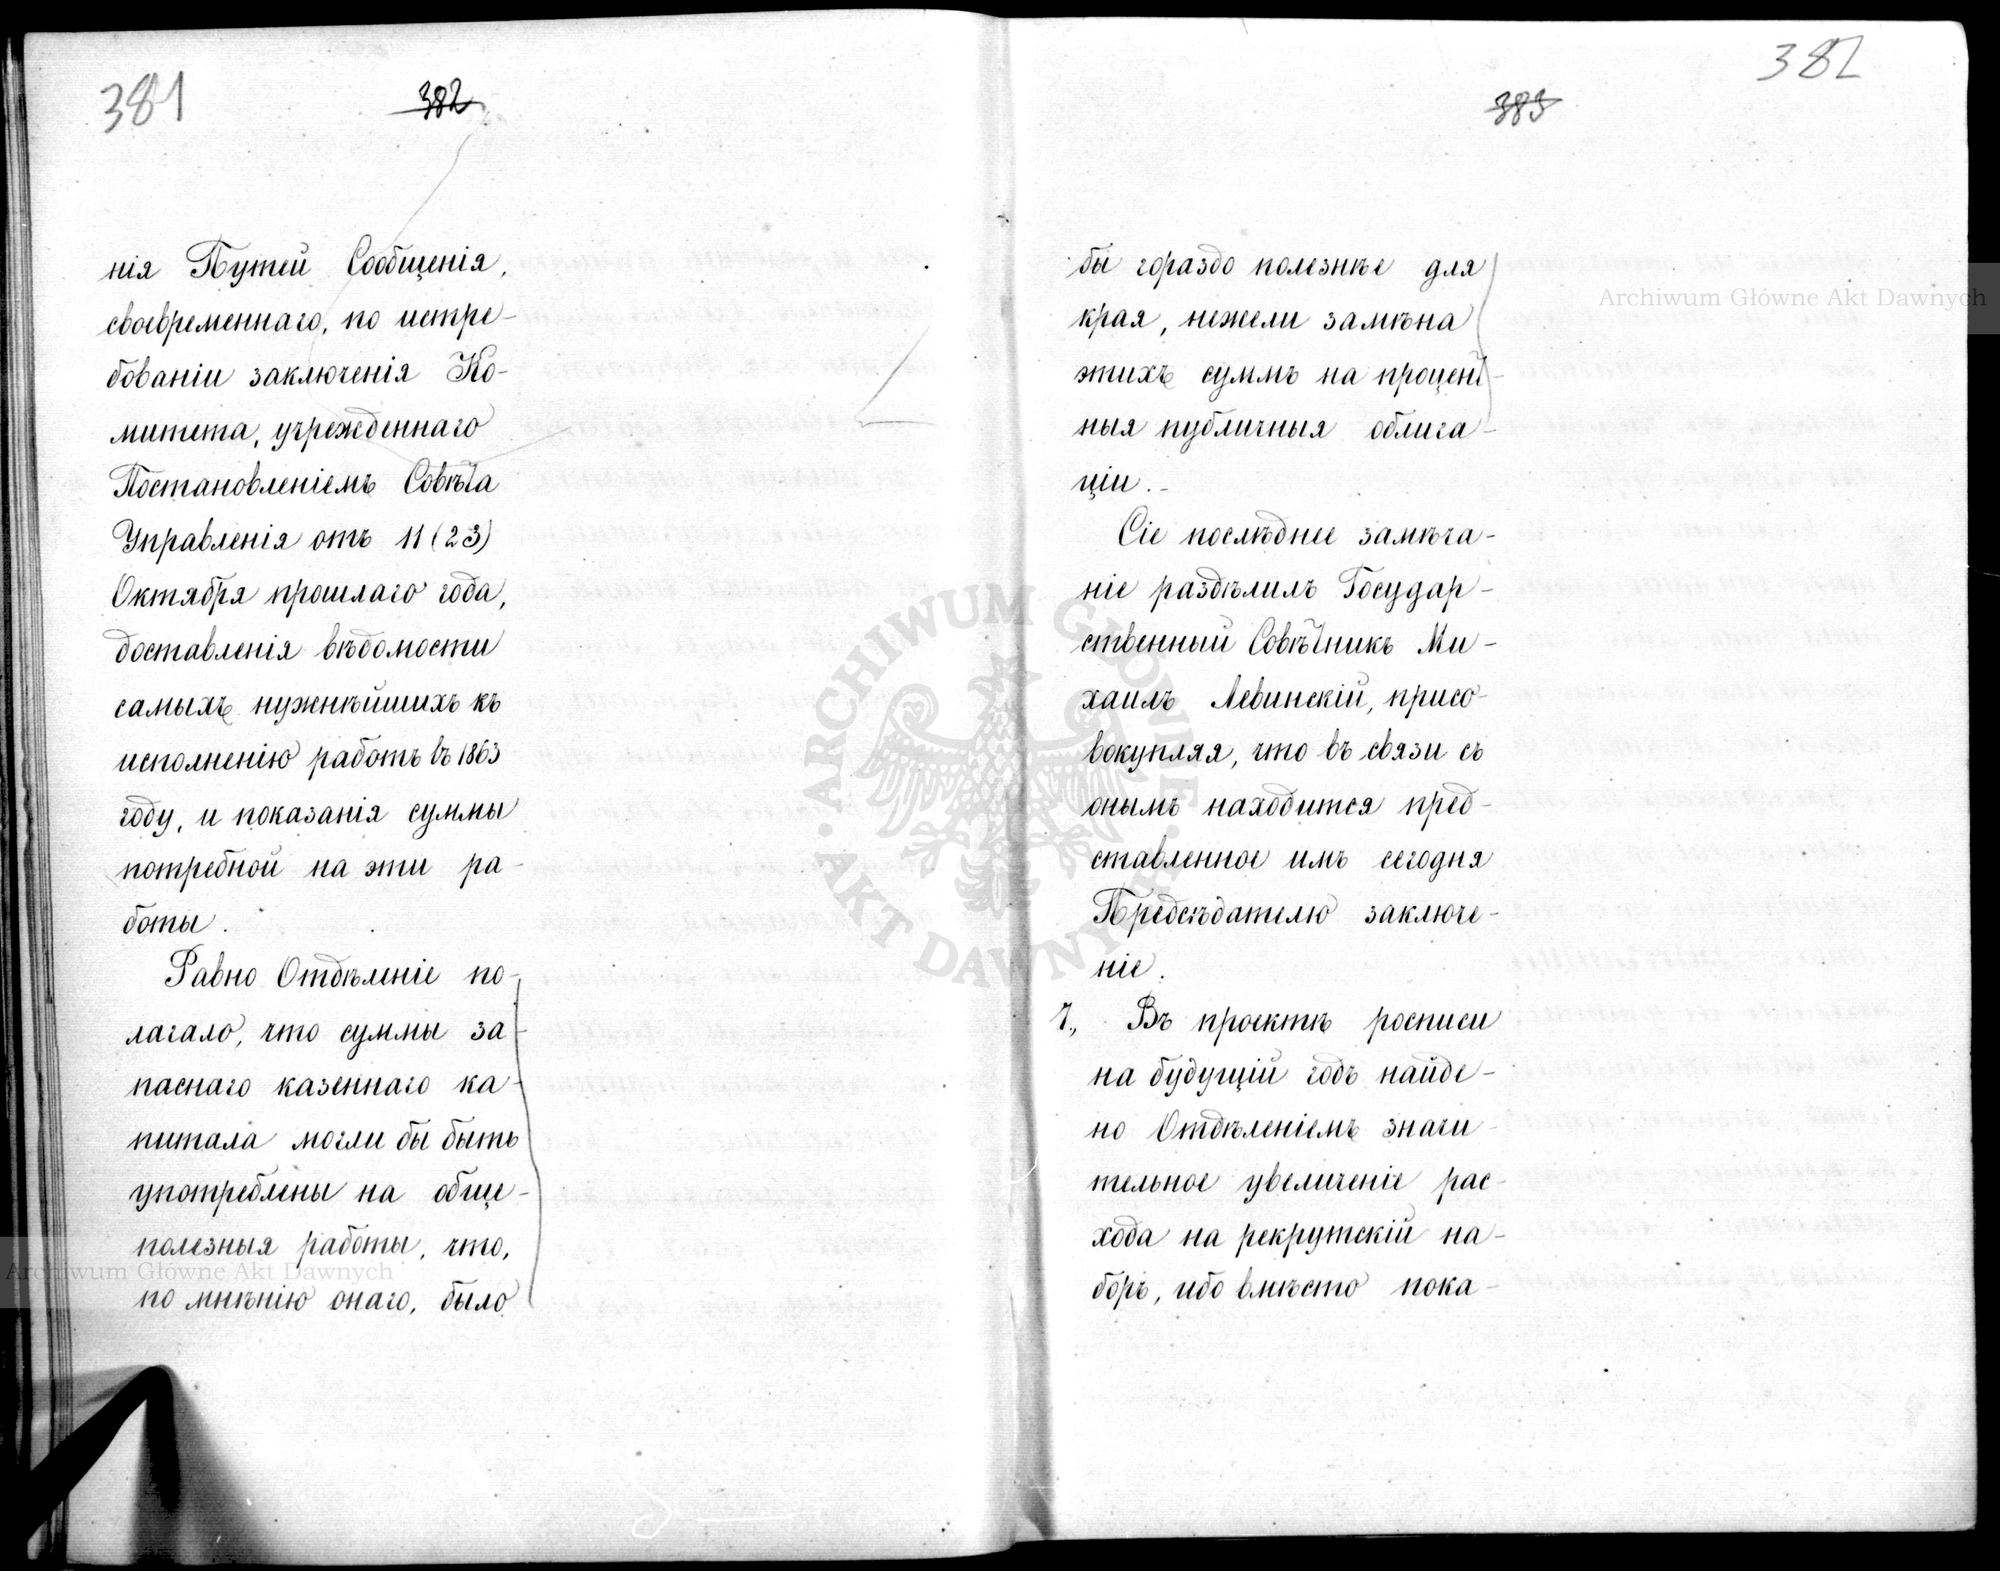 381
382
нія Путей Сообщенія,
своевременнаго, по истре-
бованіи заключенія Ко-
митета, учрежденнаго
Постановленіемъ Совѣта
Управленія отъ 11 (23)
Октября прошлаго года,
доставленія вѣдомости
самыхъ нужнѣйшихъ къ
исполненію работъ въ 1863
году, и показанія суммы
потребной на эти ра-
боты.
Равно Отдѣленіе по-
лагало, что суммы за-
паснаго казеннаго ка-
питала могли бы быть
употреблены на обще-
полезныя работы, что,
по мнѣнію онаго, было
382
383
бы гораздо полезнѣе для
края, нежели замѣна
этихъ суммъ на процент-
ныя публичныя облига-
ціи.-
Сіе послѣднее замѣча-
ніе раздѣлилъ Государ-
ственный Совѣтникъ Ми-
хаилъ Левинскій, присо-
вокупляя, что въ связи съ
онымъ находится пред-
ставленное имъ сегодня
Предсѣдателю заключе-
ніе.
7., Въ проектѣ росписи
на будущій годъ найде-
но Отдѣленіемъ значи-
тельное увеличеніе рас-
хода на рекрутскій на-
боръ, ибо вмѣсто пока-
Archiwum Główne Akt Dawnych
Archiwum Główne Akt Dawnych
ARCHIWUM GŁÓWNE
AKT DAWNYCH